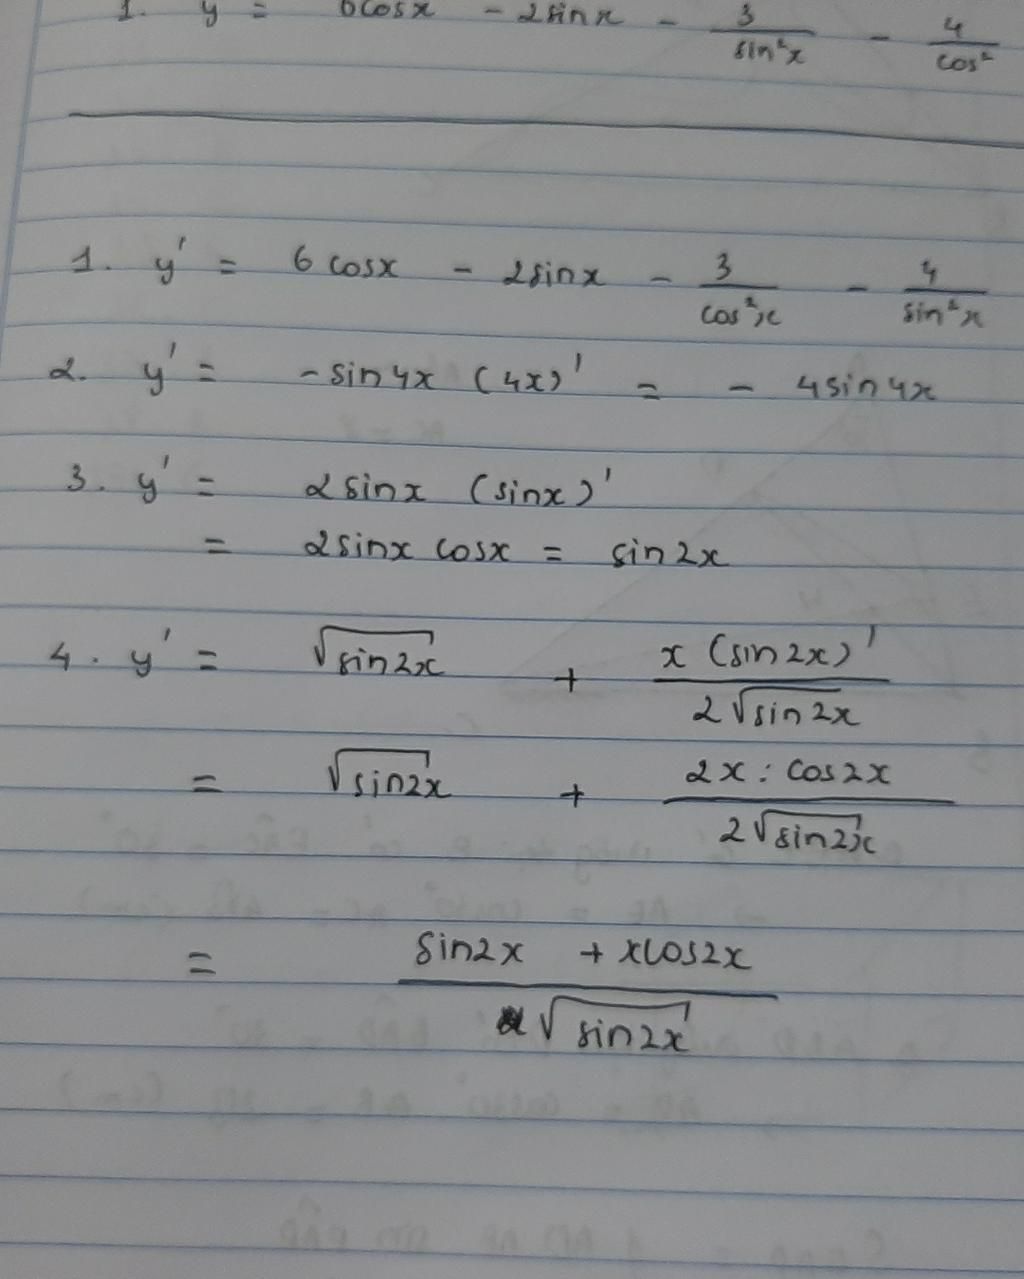 1. y = 6cosx - 2sinx - 3/sin²x - 4/cos²
1. y' = 6cosx - 2sinx - 3/cos²x - 4/sin²x
2. y' = -sin4x (4x)' = - 4sin4x
3. y' = 2sinx (sinx)'
= 2sinx cosx = sin2x
4. y' = √sin2x + x(sin2x)'/2√sin2x
= √sin2x + 2x . cos2x/2√sin2x
= sin2x + xcos2x/√sin2x